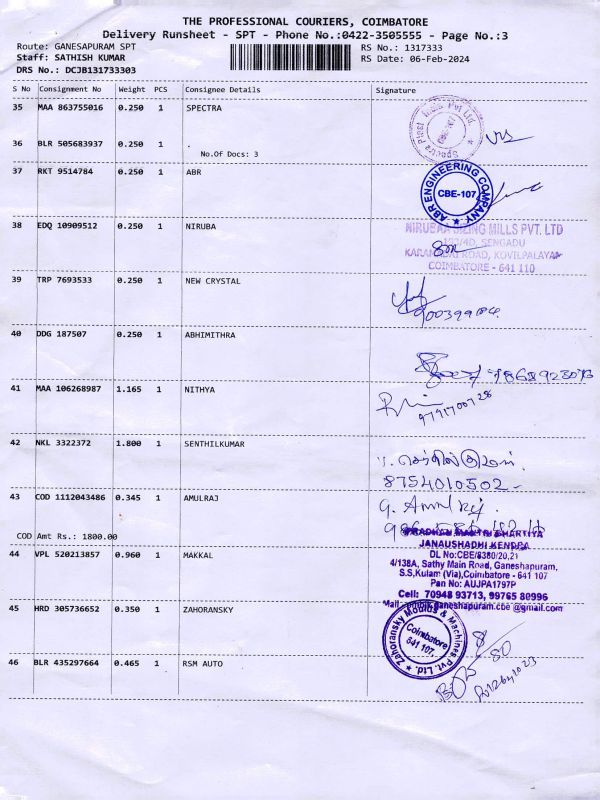 THE PROFESSIONAL COURIERS, COIMBATORE
Delivery Runsheet - SPT - Phone No.:0422-3505555 - Page No.:3
Route: GANESAPURAM SPT
RS No.: 1317333
Staff: SATHISH KUMAR
RS Date: 06-Feb-2024
DRS No.: DCJB131733303
S No Consignment No Weight PCS Consignee Details Signature
35 MAA 863755016 0.250 1 SPECTRA
Spectra Plast India Pvt Ltd.
36 BLR 505683937 0.250 1 .
No.Of Docs: 3
37 RKT 9514784 0.250 1 ABR
ABR ENGINEERING COMPANY
CBE-107
38 EDQ 10909512 0.250 1 NIRUBA
MILLS PVT. LTD
SENGADU
ROAD, KOVILPALAYAM
COIMBATORE - 641 110
39 TRP 7693533 0.250 1 NEW CRYSTAL
40 DDG 187507 0.250 1 ABHIMITHRA
41 MAA 106268987 1.165 1 NITHYA
9791700728
42 NKL 3322372 1.800 1 SENTHILKUMAR
செந்தில்குமார்
8754010502
43 COD 1112043486 0.345 1 AMULRAJ
G. Amul Raj
COD Amt Rs.: 1800.00
44 VPL 520213857 0.960 1 MAKKAL
JANAUSHADHI KENDRA
DL No:CBE/8380/20,21
4/138A, Sathy Main Road, Ganeshapuram,
S.S,Kulam (Via),Coimbatore - 641 107
Pan No: AUJPA1797P
Cell: 70948 93713, 99765 80996
45 HRD 305736652 0.350 1 ZAHORANSKY
Zahoransky Moulds & Machines Pvt. Ltd.
Coimbatore
641 107.
46 BLR 435297664 0.465 1 RSM AUTO